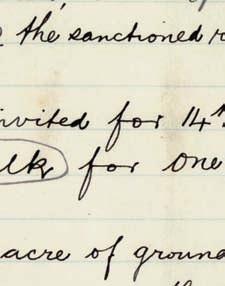 the sanctioned
invited for 14th
for one
acre of ground